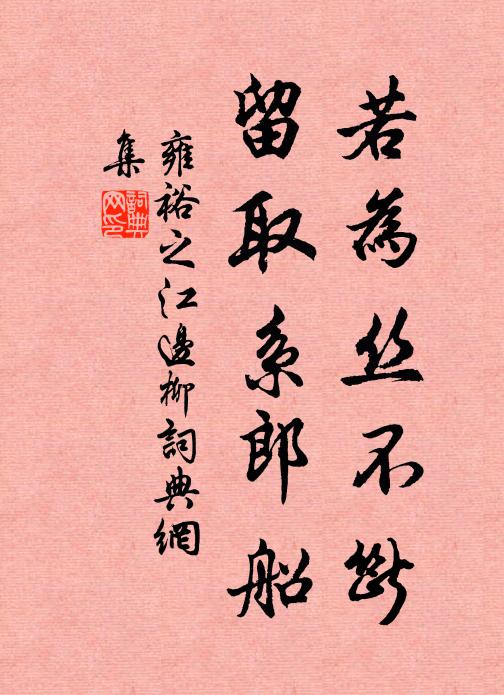 若為丝不斷
留取系郎船
雍裕之江邊柳詞典網
集
詞典網印